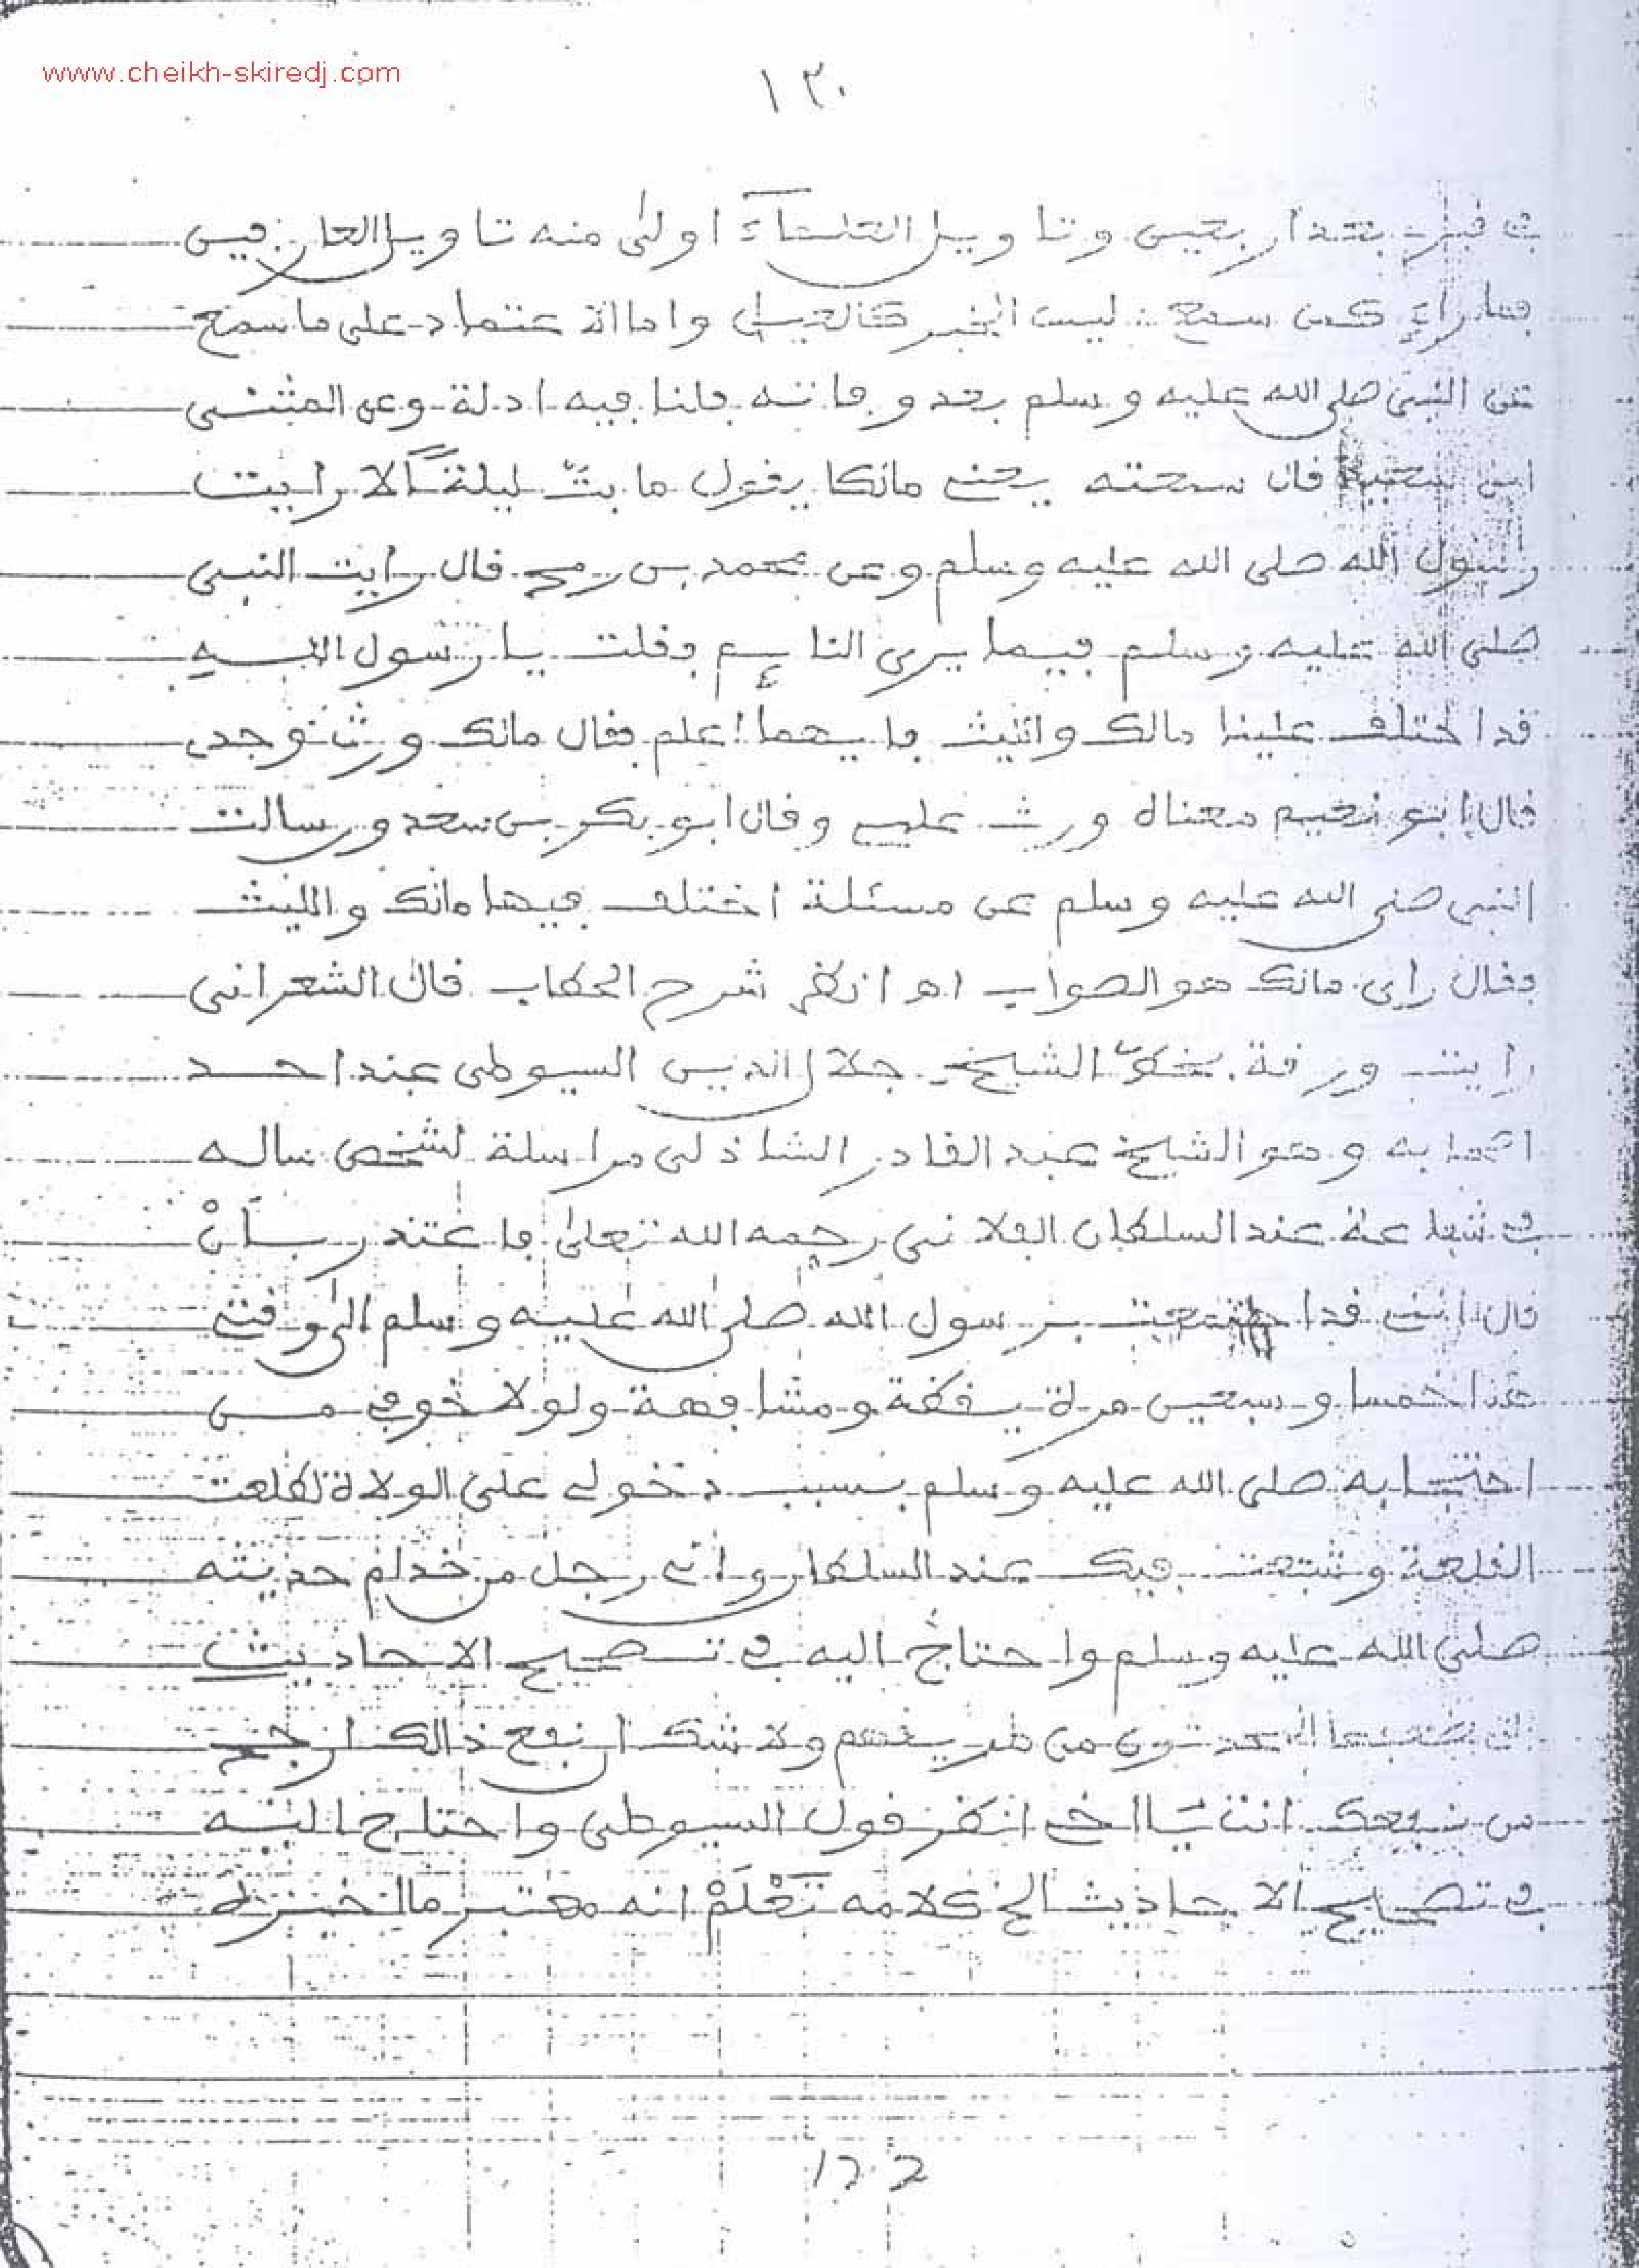 www.cheikh-skiredj.com
١٣٠
وتاويل العلمآء اولى منه تاويل العارفين
فما راءٍ كمن سمع ليس الخبر كالعيان واما الاعتماد على ما سمع
من النبي صلى الله عليه وسلم بعد وفاته فلنا فيه ادلة وعن المثنى
ابن سعيد قال سمعته يعني مالكا يقول ما بتّ ليلةً الا رايت
رسول الله صلى الله عليه وسلم وعن محمد بن رمح قال رايت النبي
صلى الله عليه وسلم فيما يرى النايم فقلت يا رسول الله
قد اختلف علينا مالك والليث فايهما اعلم فقال مالك ورث
قال ابو نعيم معناه ورث علمي وقال ابو بكر بن سعدو سالت
النبي صلى الله عليه وسلم عن مسئلة اختلف فيها مالك والليث
فقال راى مالك هو الصواب اه انظر شرح الحطاب قال الشعراني
رايت ورقة بخطّ الشيخ جلال الدين السيوطي عند احد
اصحابه وهو الشيخ عبد القادر الشاذلي مراسلة لشخص ساله
في شفاعة عند السلطان رحمه الله تعالى فاعتذر بأنْ
قال انني قد اجتمعت برسول الله صلى الله عليه وسلم الى وقتي
هذا خمسا وسبعين مرة يقظة ومشافهة ولولا خوفي من
احتجابه صلى الله عليه وسلم بسبب دخولي على الولاة لطلعت
القلعة وشفعت فيك عند السلطان واني رجل من خدام حديثه
صلى الله عليه وسلم واحتاج اليه في تصحيح الاحاديث
التي ضعفها المحدثون من طريقهم ولا شك ان نفع ذالك ارجح
من نفعك انت يا اخي انظر قول السيوطي واحتاج اليه
في تصحيح الاحاديث الخ كلامه تَعْلَمْ انه معتبر